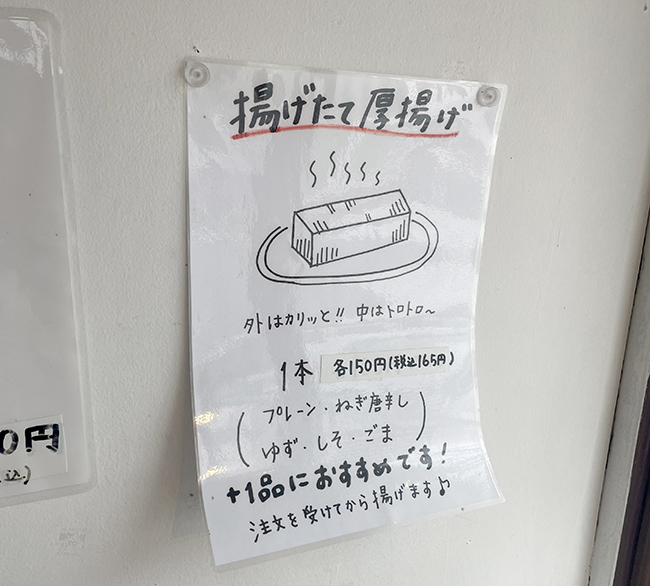 揚げたて厚揚げ
外はカリッと!! 中はトロトロ~
1本 各150円(税込165円)
(プレーン・ねぎ唐辛し
ゆず・しそ・ごま)
+1品におすすめです!
注文を受けてから揚げます♪
0円
込)